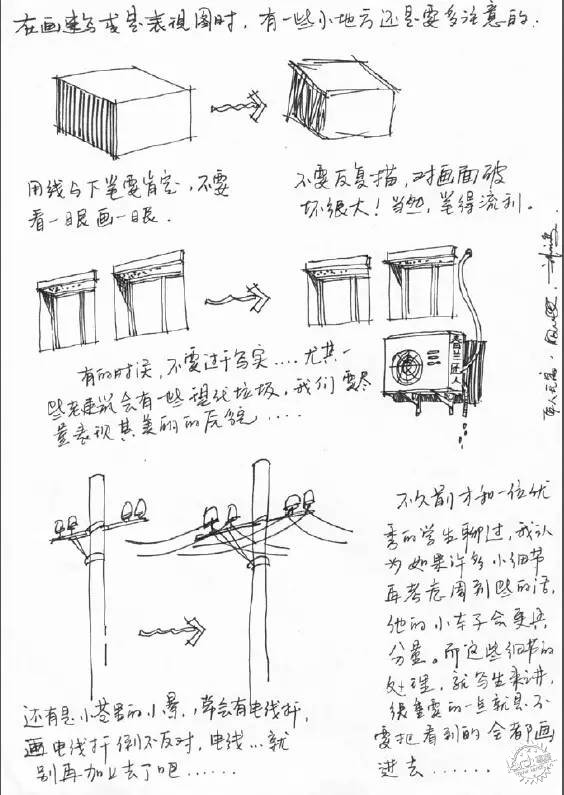 在画速写或是表视图时,有一些小地方还是要多注意的.
用线与下笔要肯定,不要
看一眼画一眼.
不要反复描,对画面破
坏很大!当然,笔得流利.
有的时候,不要过于写实....尤其一
些老建筑会有一些现代垃圾,我们要尽
量表现其美的的
.....
还有是小巷里的小景,常会有电线杆,
画电线杆倒不反对,电线...就
别再加上去了吧......
不久前才和一位优
秀的学生聊过,我认
为如果许多小细节
再考虑周到些的话,
他的小车子会更具
分量。而这些细节的
处理,就写生来讲,
很重要的一点就是不
要把看到的全都画
进去......